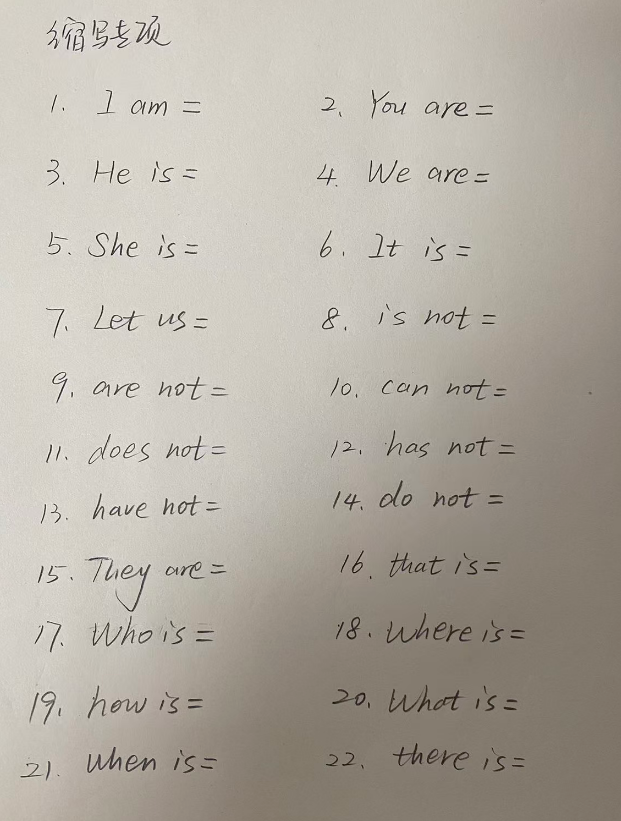 缩写专项
1. I am = 2. You are =
3. He is = 4. We are =
5. She is = 6. It is =
7. Let us = 8. is not =
9. are not = 10. can not =
11. does not = 12. has not =
13. have not = 14. do not =
15. They are = 16. that is =
17. Who is = 18. Where is =
19. how is = 20. What is =
21. when is = 22. there is =